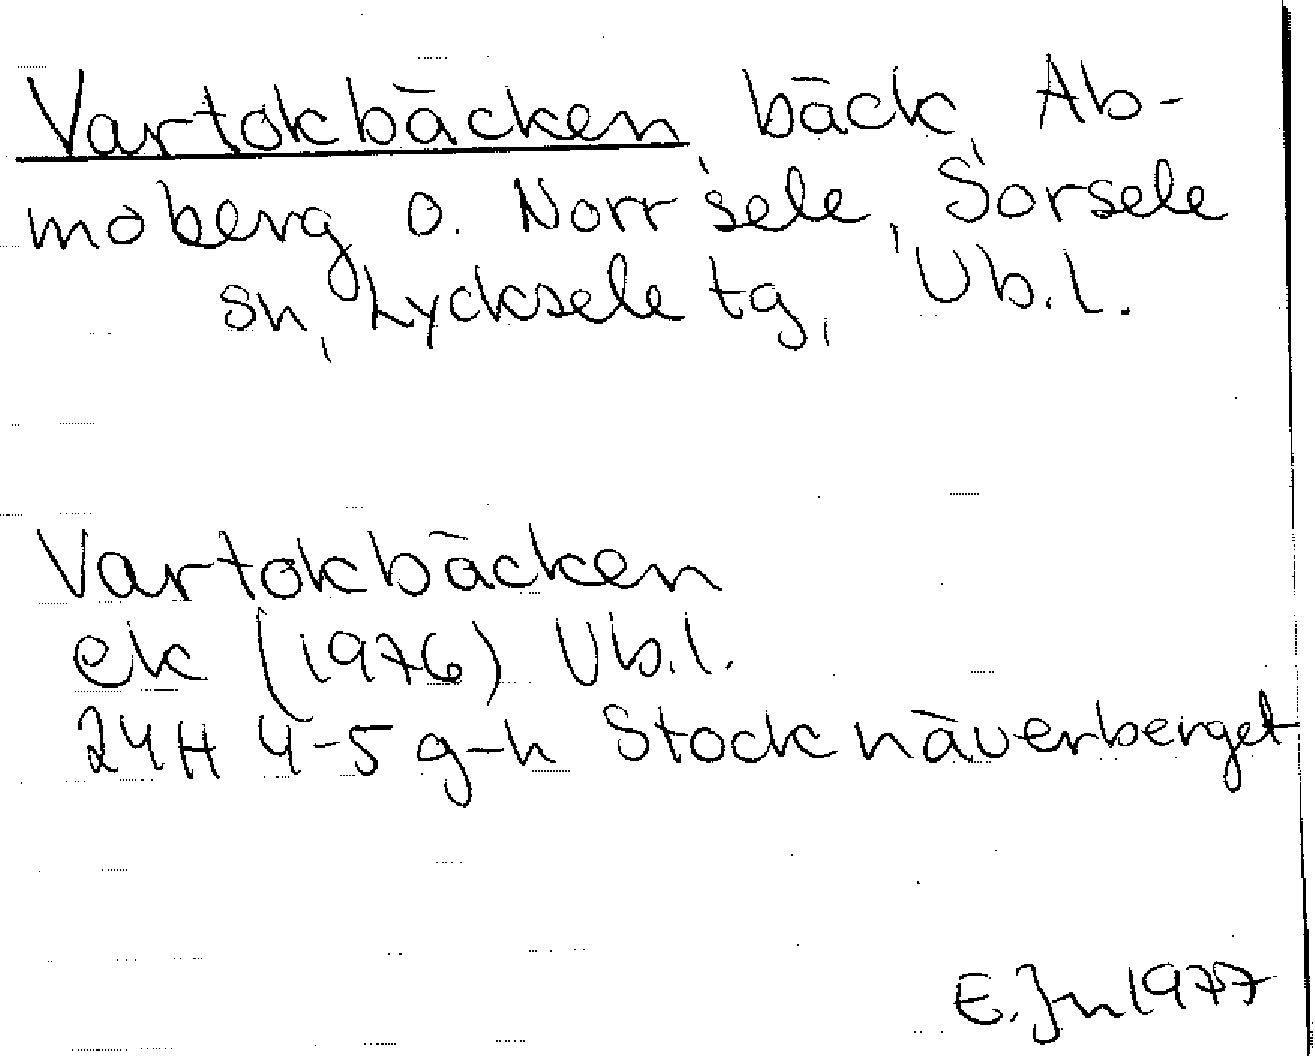 Vartokbäcken bäck, Ab-
moberg o. Norrsele, Sorsele
sn, Lycksele tg, Vb.l.
Vartokbäcken
ek (1976) Vb.l.
24H 4-5 g-h Stocknäverberget
E. Jn 1977